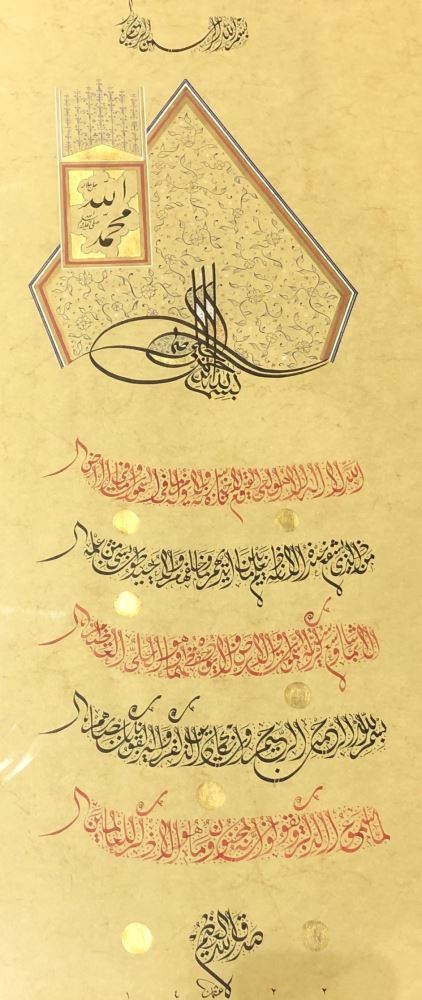 بسم الله الرحمن الرحيم
الله جل جلاله
محمد
بسم الله الرحمن الرحيم
الله لا اله الا هو الحي القيوم لا تأخذه سنة ولا نوم له ما في السموات وما في الارض
من ذا الذي يشفع عنده الا باذنه يعلم ما بين ايديهم وما خلفهم ولا يحيطون بشيء من علمه
الا بما شاء وسع كرسيه السموات والارض ولا يؤده حفظهما وهو العلي العظيم
بسم الله الرحمن الرحيم وان يكاد الذين كفروا ليزلقونك بابصارهم
لما سمعوا الذكر ويقولون انه لمجنون وما هو الا ذكر للعالمين
صدق الله العظيم
١ ٤ ٢ ٢